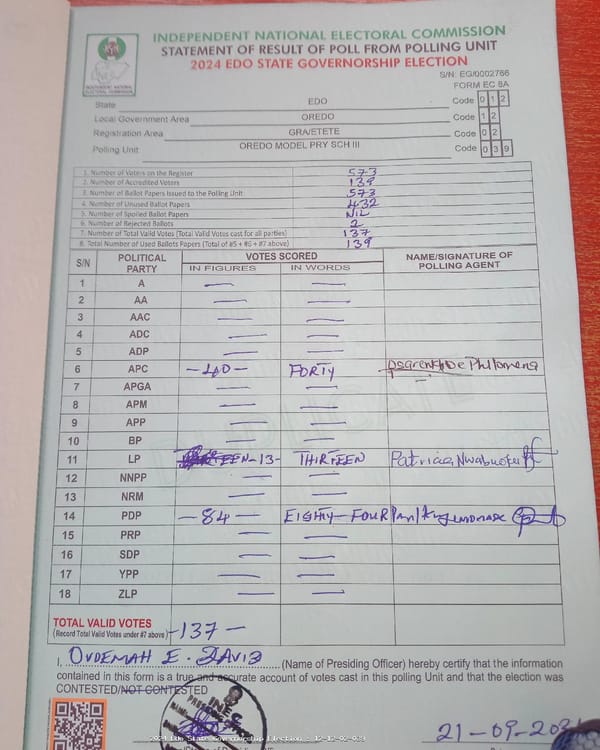 INDEPENDENT NATIONAL ELECTORAL COMMISSION
STATEMENT OF RESULT OF POLL FROM POLLING UNIT
2024 EDO STATE GOVERNORSHIP ELECTION
INDEPENDENT NATIONAL ELECTORAL COMMISSION
S/N: EG/0002766
FORM EC 8A
State EDO Code 0 1 2
Local Government Area OREDO Code 1 2
Registration Area GRA/ETETE Code 0 2
Polling Unit OREDO MODEL PRY SCH III Code 0 3 9
1. Number of Voters on the Register 573
2. Number of Accredited Voters 139
3. Number of Ballot Papers Issued to the Polling Unit 573
4. Number of Unused Ballot Papers 432
5. Number of Spoiled Ballot Papers NIL
6. Number of Rejected Ballots 2
7. Number of Total Valid Votes (Total Valid Votes cast for all parties) 137
8. Total Number of Used Ballots Papers (Total of #5 + #6 + #7 above) 139
S/N POLITICAL PARTY VOTES SCORED NAME/SIGNATURE OF POLLING AGENT
IN FIGURES IN WORDS
1 A — —
2 AA — —
3 AAC — —
4 ADC — —
5 ADP — —
6 APC -40- FORTY Philomena
7 APGA — —
8 APM — —
9 APP — —
10 BP — —
11 LP -13- THIRTEEN Patricia
12 NNPP — —
13 NRM — —
14 PDP -84- EIGHTY-FOUR
15 PRP — —
16 SDP — —
17 YPP — —
18 ZLP — —
TOTAL VALID VOTES
(Record Total Valid Votes under #7 above) -137-
I, OVDEMAH E. DAVID (Name of Presiding Officer) hereby certify that the information
contained in this form is a true and accurate account of votes cast in this polling Unit and that the election was
CONTESTED/NOT CONTESTED
INEC
2024 Edo State Governorship Election - 12-12-02-039
21-09-202